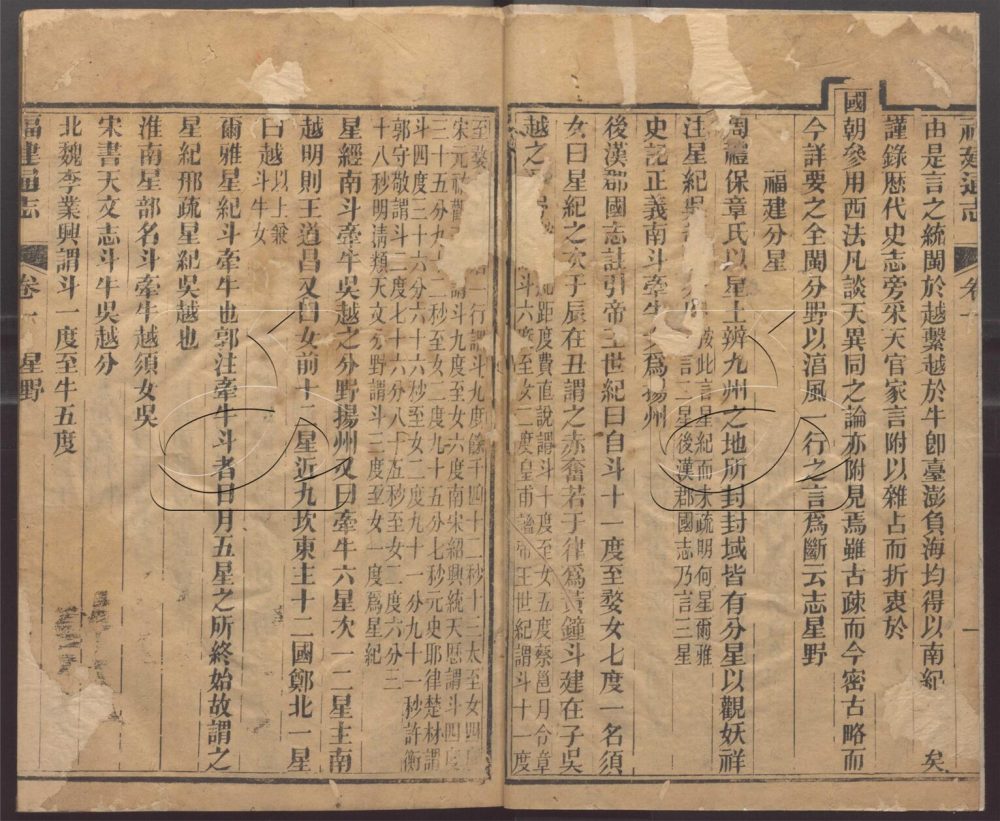 福建通志
卷一
一
由是言之統閩於越繫越於牛卽臺澎負海均得以南紀矣
謹錄歷代史志旁采天官家言附以雜占而折衷於
國朝參用西法凡談天異同之論亦附見焉雖古疎而今密古略而
今詳要之全閩分野以湻風一行之言爲斷云志星野
福建分星
周禮保章氏以星土辨九州之地所封封域皆有分星以觀妖祥
注星紀吳
按此言星紀而未疏明何星爾雅
注言二星後漢郡國志乃言三星
史記正義南斗牽牛 爲揚州
後漢郡國志註引帝王世紀曰自斗十一度至婺女七度一名須
女曰星紀之次于辰在丑謂之赤奮若于律爲黃鐘斗建在子吳
越之
距度費直說謂斗十度至女五度蔡邕月令章
斗六度至女二度皇甫謐帝王世紀謂斗十一度
至婺 一行謂斗九度餘千四十二秒十二太至女四度
宋元 謂斗九度至女六度南宋紹興統天歷謂斗四度
三十五分九十二秒至女二度九十五分七秒元史耶律楚材謂
斗四度三十六分六十六秒至女二度九十一分九十一秒許衡
郭守敬謂斗三度七十六分八十五秒至女二度六分三
十八秒明淸類天文分野謂斗三度至女一度爲星紀
星經南斗牽牛吳越之分野揚州又曰牽牛六星次一二星主南
越明則王道昌又曰女前十二星近九坎東主十二國鄭北一星
曰越
以上兼
斗牛女
爾雅星紀斗牽牛也郭注牽牛斗者日月五星之所終始故謂之
星紀邢疏星紀吳越也
淮南星部名斗牽牛越須女吳
宋書天文志斗牛吳越分
北魏李業興謂斗一度至牛五度
福建通志
卷一
星野